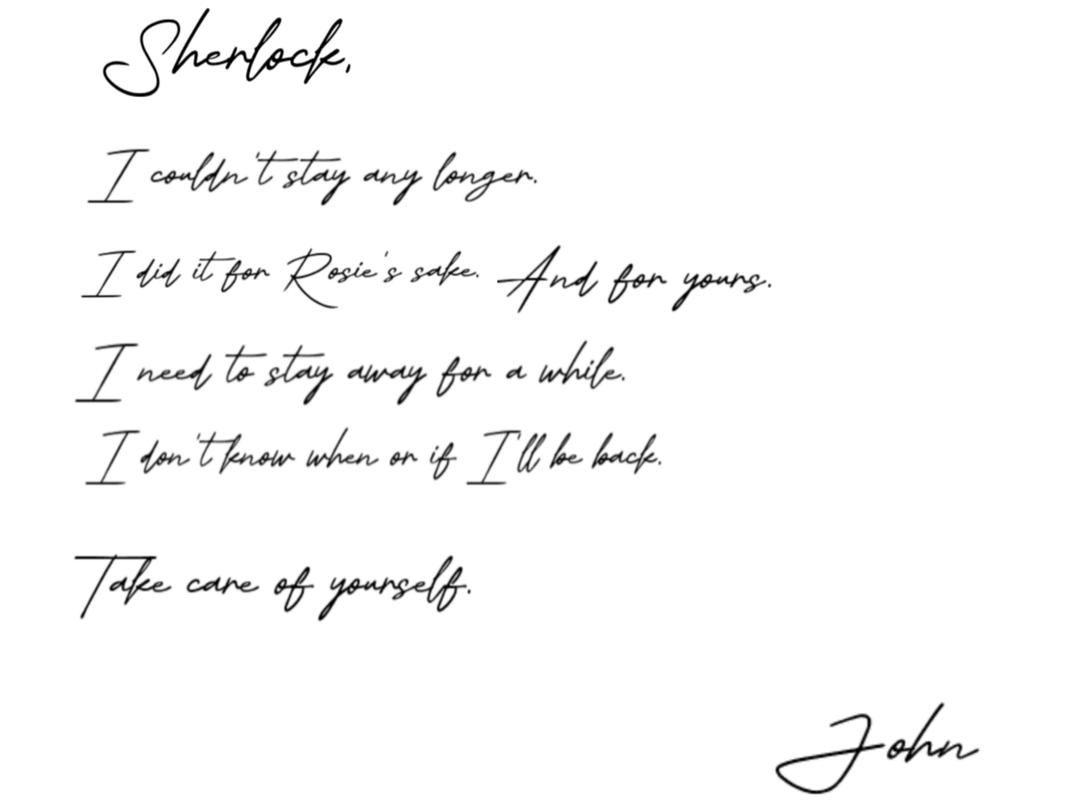 Sherlock,
I couldn't stay any longer.
I did it for Rosie's sake. And for yours.
I need to stay away for a while.
I don't know when or if I'll be back.
Take care of yourself.
John